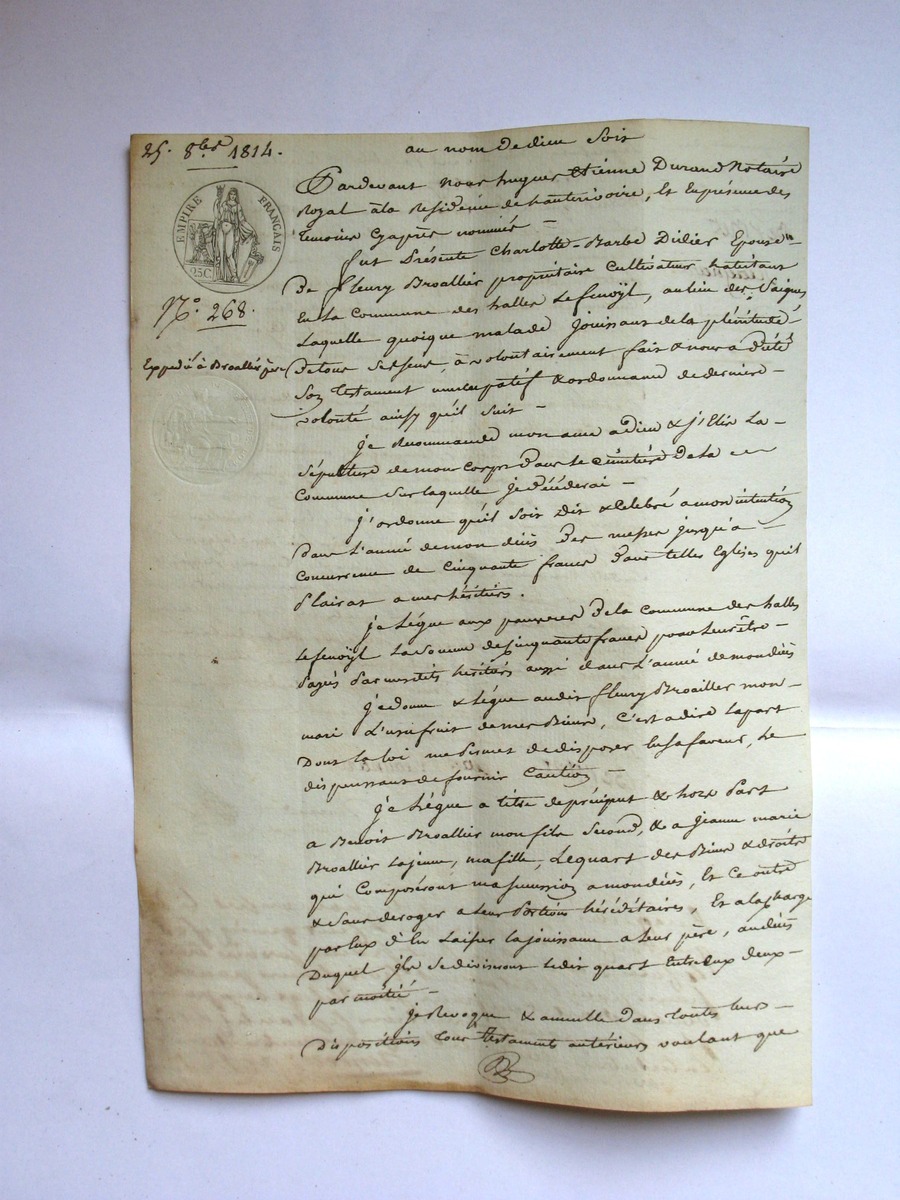 25. 8bre 1814.
au nom de dieu soit
EMPIRE FRANÇAIS
25C
No. 268.
Expedié à Broallier père
Pardevant Nous hugues Etienne Durand Notaire
Royal à la Residence de hauterivoire, Et En présence des
temoins Cyaprès nommés —
fut Présente Charlotte-Barbe Didier Epouse
De fleury Broallier propriétaire Cultivateur habitant
En la Commune des halles Lefenoÿl, au lieu des
Laquelle quoique malade Jouissant de la plénitude
De tous ses sens, à volontairement fait & nous a dicté
Son Testament nuncupatif & ordonnance de derniere
volonté ainsy qu'il suit —
je Recommande mon ame a dieu & j'Elis La
Sépulture de mon Corps Dans le cimetière De la
Commune Sur laquelle je décéderai —
j'ordonne qu'il soit dit & Celebré a mon intention
Dans L'année de mon décès Des messes jusqu'a
Concurrence de Cinquante francs Dans telles Eglises qu'il
Plairat a mes héritiers.
je Légue aux pauvres De la Commune des halles
Lefenoÿl La Somme de Cinquante francs pour Leur être
Payés Par mesdits héritiers aussi dans L'année de mon décès
je donne & Légue audit fleury Broallier mon
mari L'usufruit de mes Biens, C'est a dire la part
Dont la loi me Permet de disposer En sa faveur, Le
dispensant de fournir Caution —
je Légue a titre de préciput & hors Part
a Benoit Broallier mon fils Second, & a jeanne marie
Broallier la jeune, ma fille, Le quart des Biens & droits
qui Composeront ma succession a mon décès, Et Ce outre
& Sans deroger a leur Portions héréditaires, Et a la charge
par Eux d'En Laisser la jouissance a leur père, au décès
Duquel ils se diviseront Ledit quart Entre Eux deux
par moitié —
je Revoque & annulle Dans Toutes leurs
Dispositions Tous Testaments antérieurs voulant que